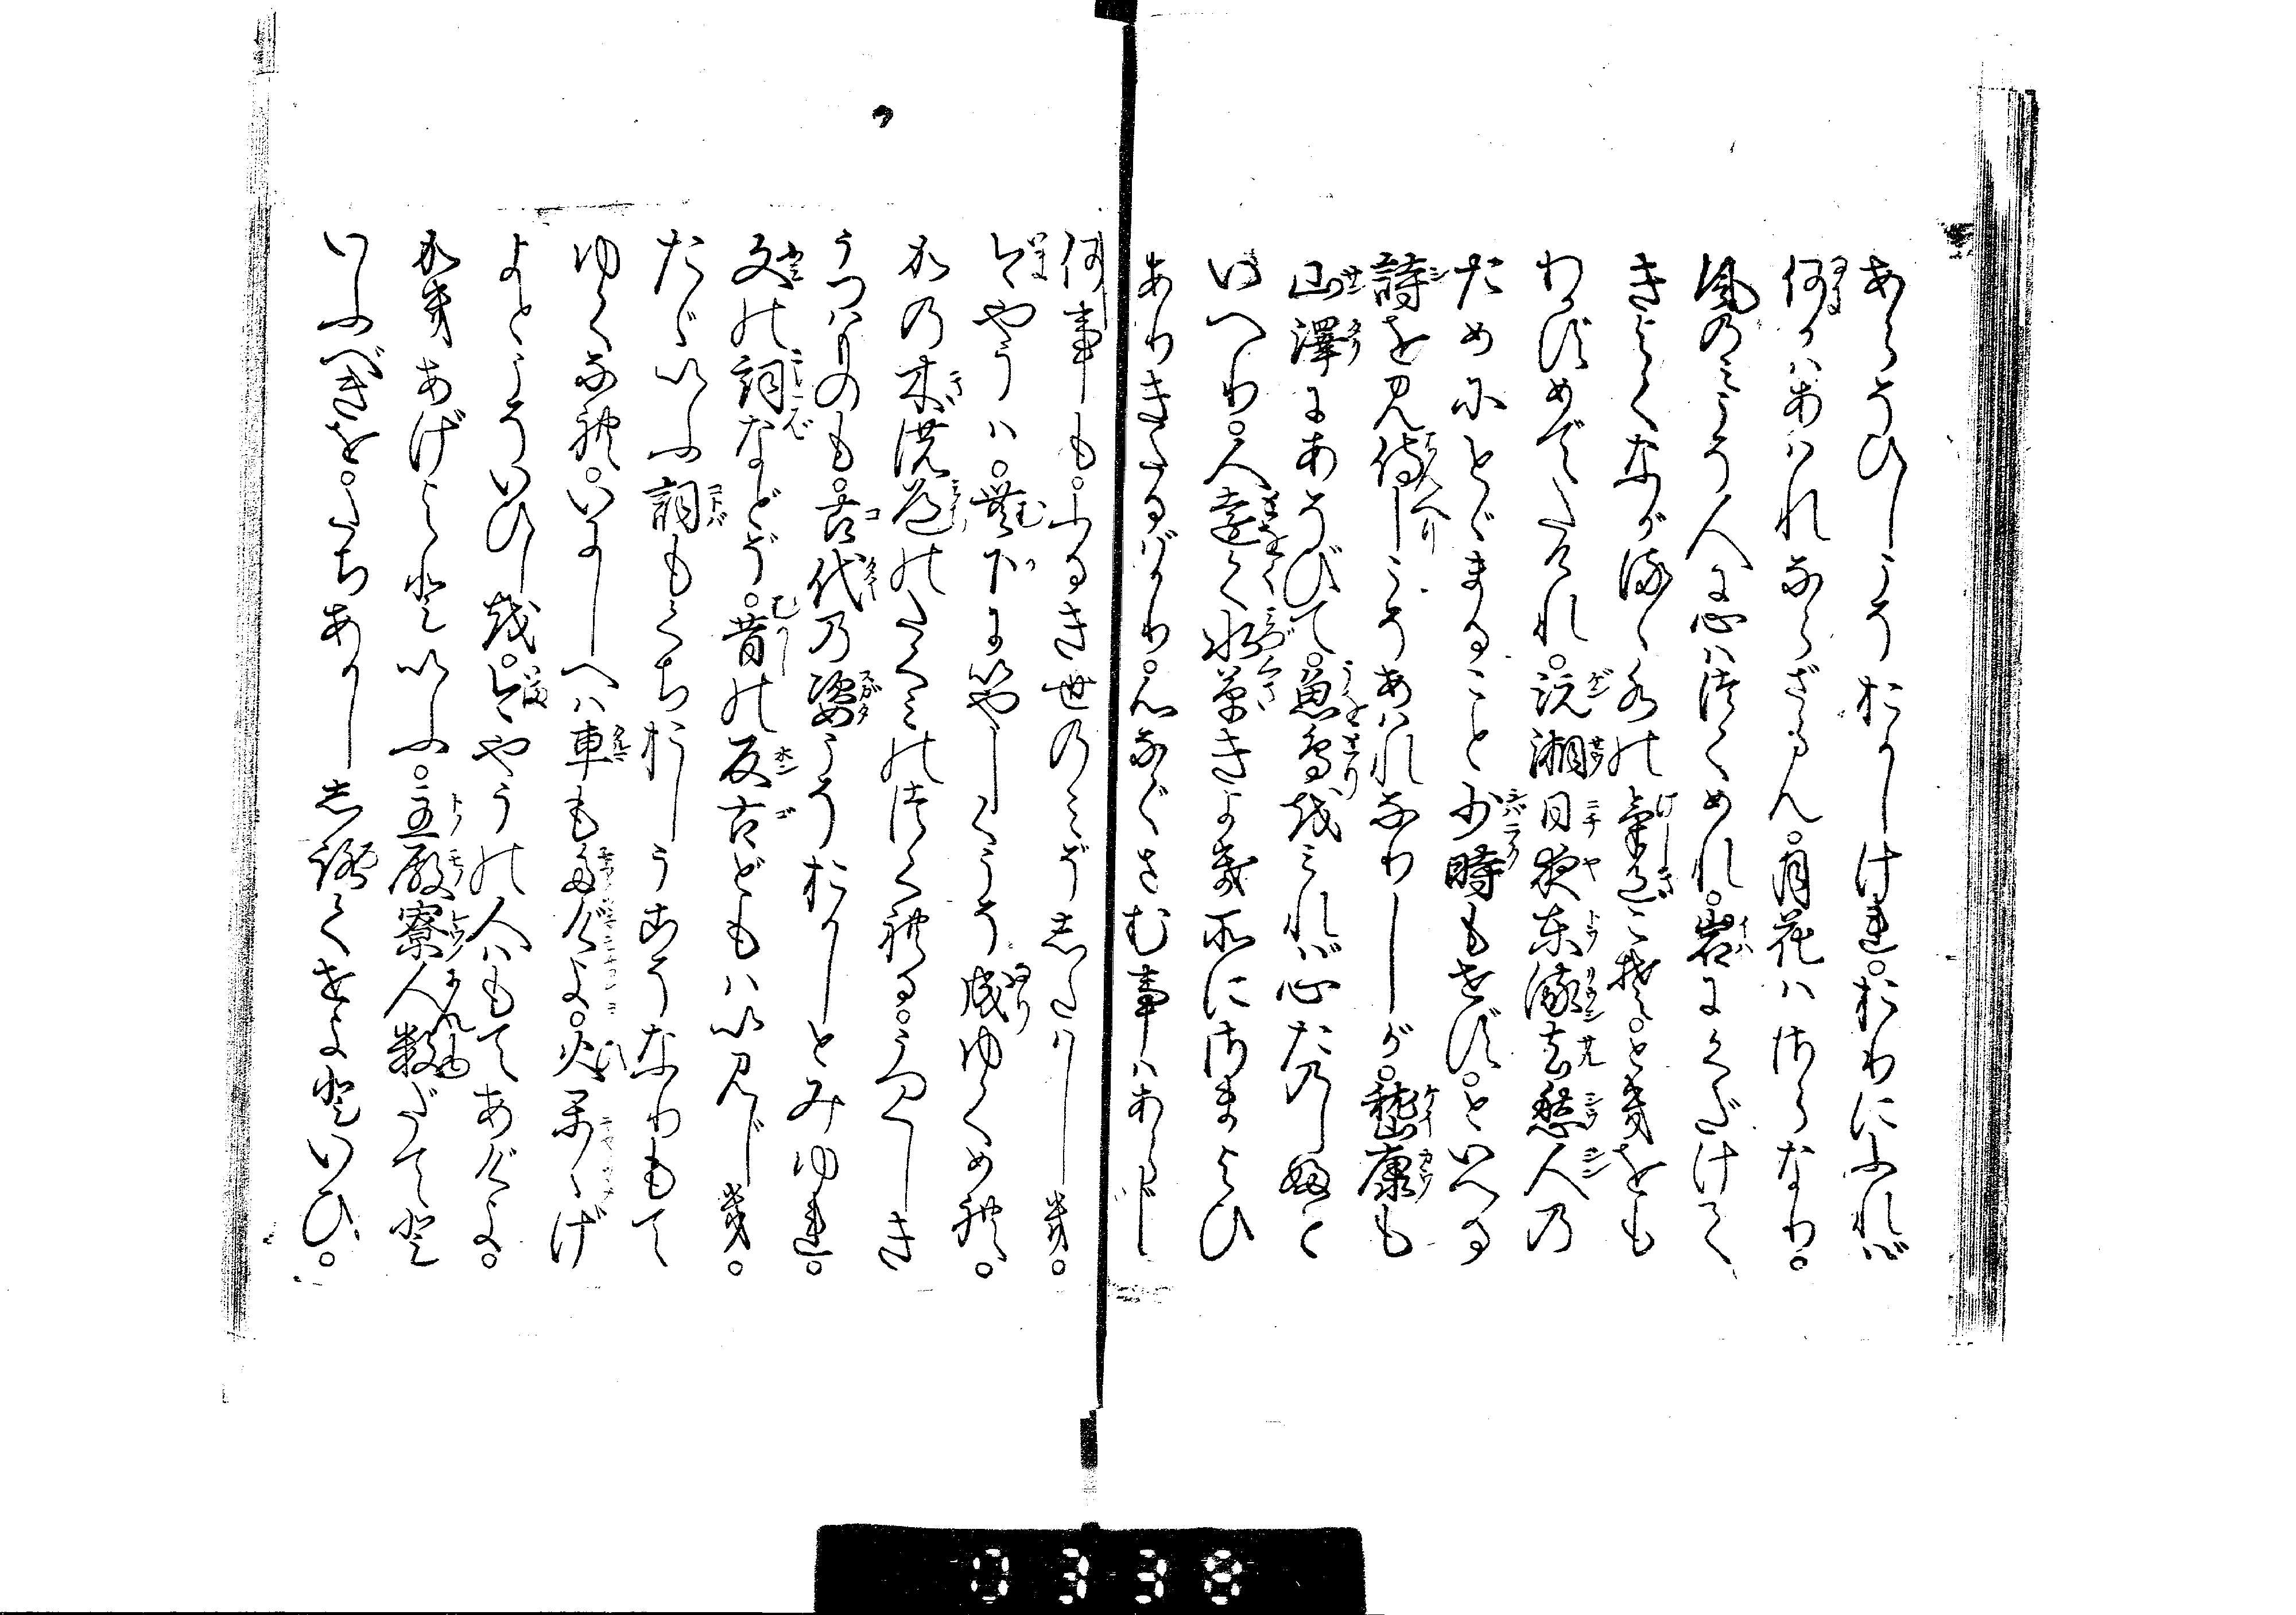 あらそひしこそおかしけれ。おりにふれば
何かはあはれならざらん。月花はさらなり。
風のみこそ人に心はつくめれ。岩にくだけて
きよくながるゝ水の氣色こそ。とき をも
わかずめでたけれ。沅湘日夜東流去愁人の
ためにとゞまること少時もせず。といへる
詩を見侍しこそあはれなりしが。嵆康も
山澤にあそびて。魚鳥をみれば心たのしふと
いへり。人遠く水草きよき所にさまよひ
ありきたるばかり。心なぐさむ事はあらじ
何事も。ふるき世のみぞしたはしき。
今やうは。無下にいやしくこそ成ゆくめれ。
かの木の道のたくみのつくれる。うつくしき
うつはものも。古代の姿こそおかしとみゆれ。
文の詞などぞ。昔の反古どもはいみじき。
たゞいふ詞もくちおしうこそなりもて
ゆくなれ。いにしへは車もたげよ。火かゝげ
よとこそいひしを。今やうの人はもてあげよ。
かきあげよといふ。主殿寮人数だてと
いふべきを。たちあかししろくせよといひ。
0338